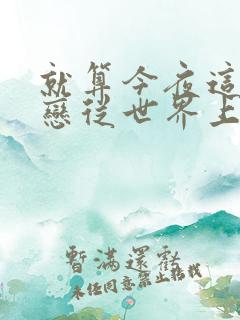 就算今夜這
戀從世界上
暫滿還虧
未經同意禁止轉載